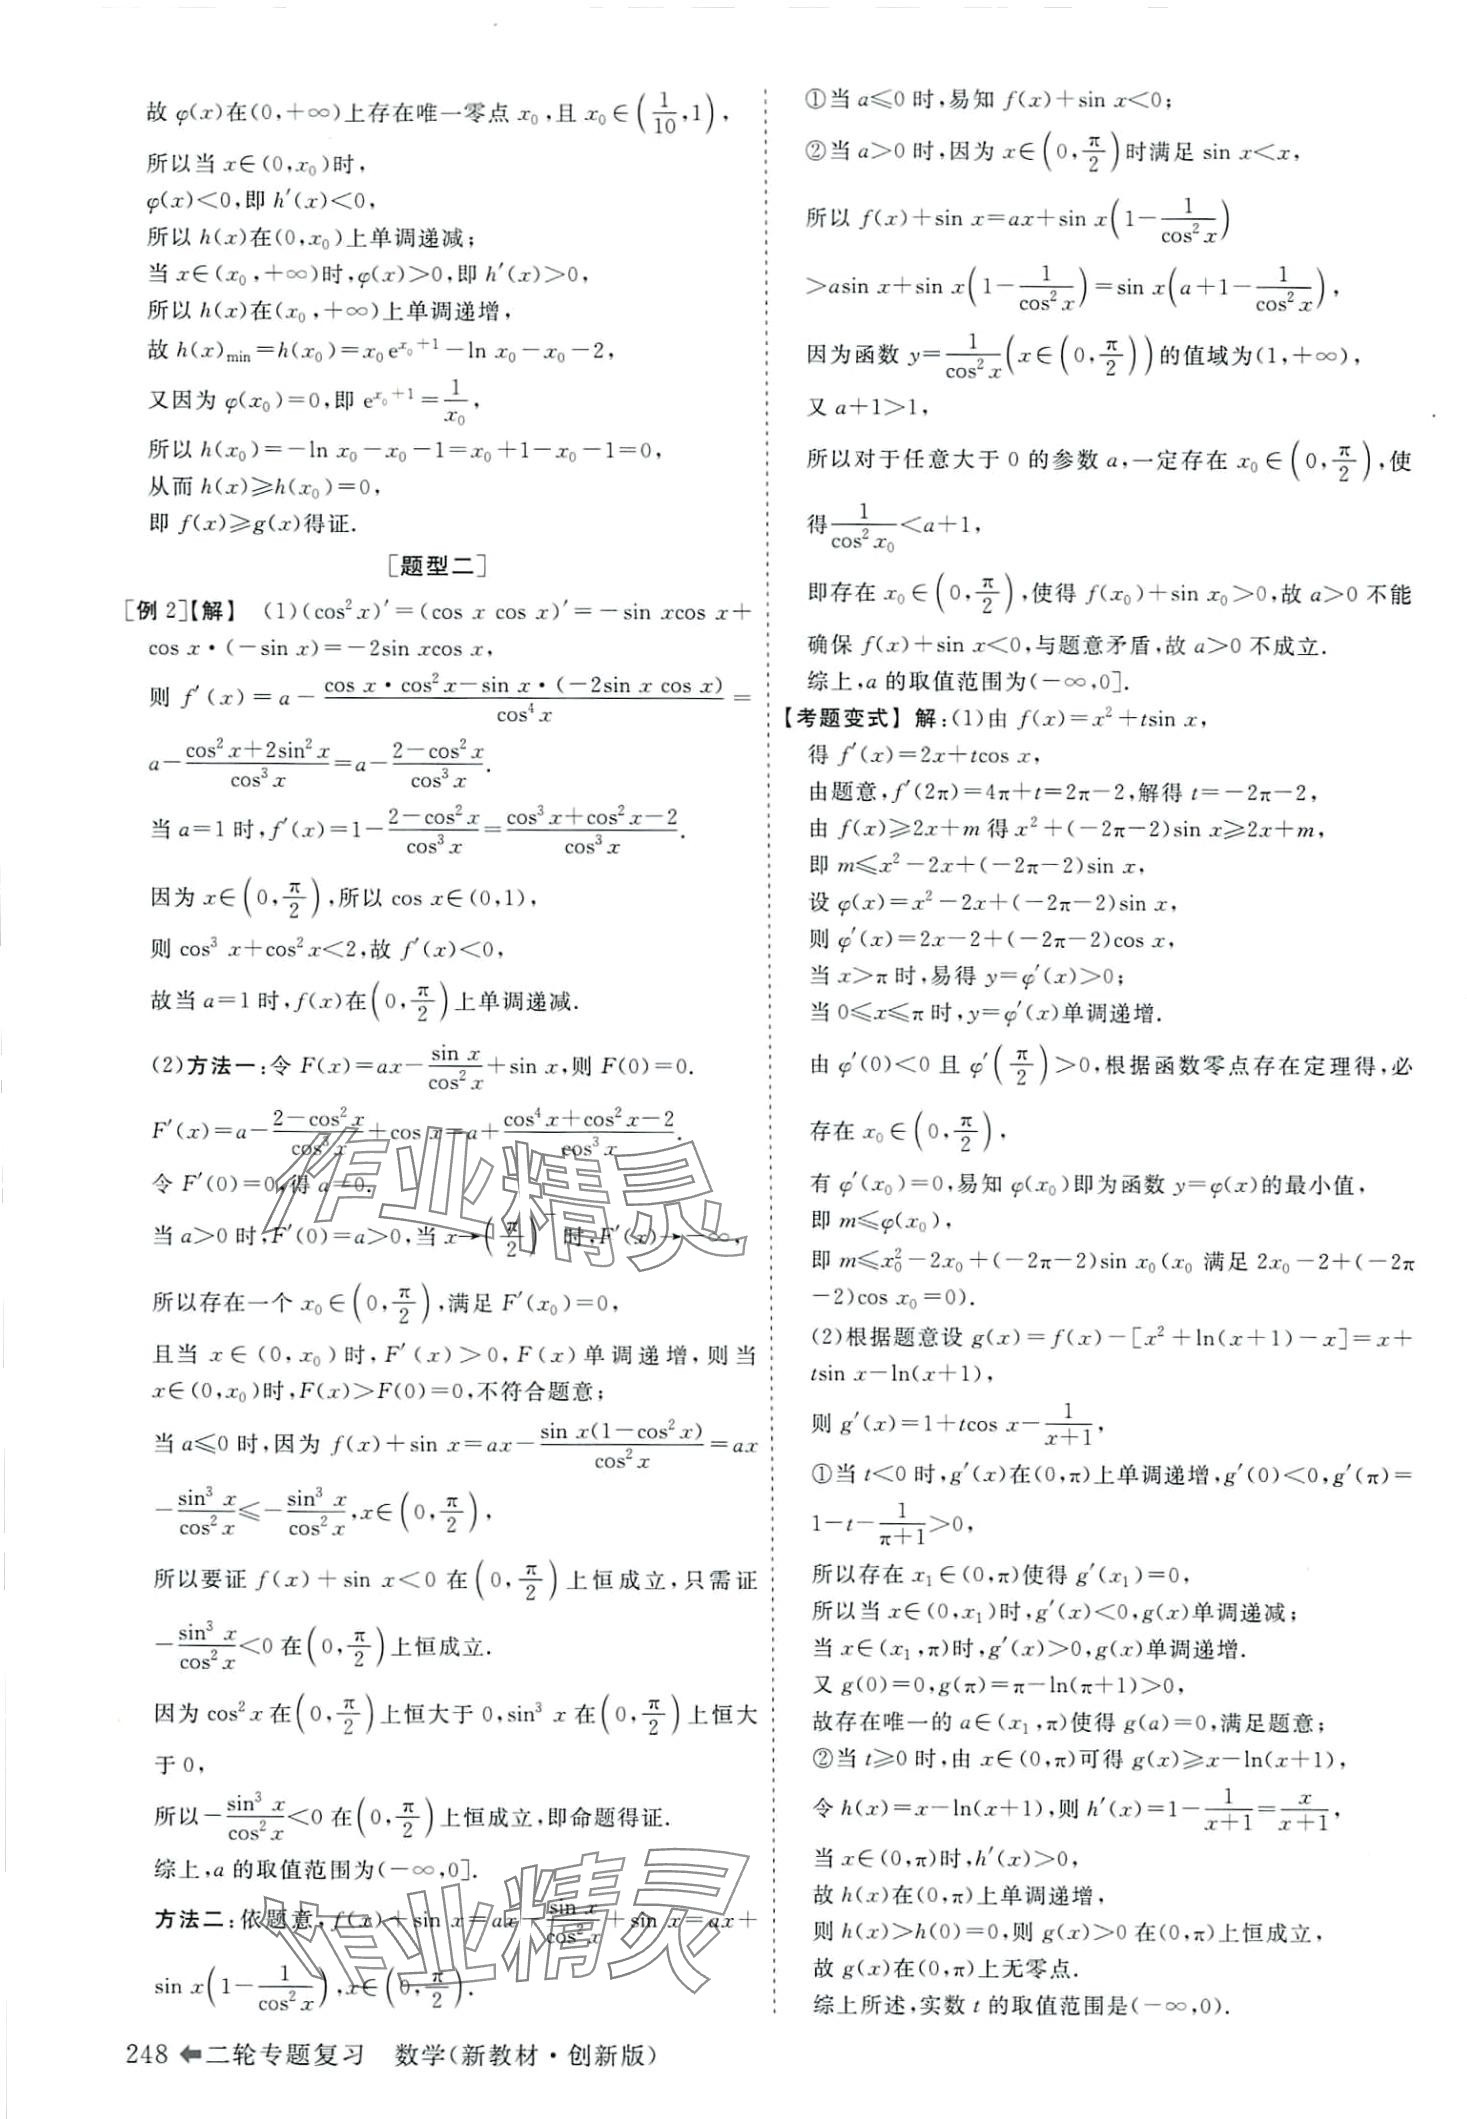 故 φ(x)在(0,+∞)上存在唯一零点 x₀,且 x₀∈(1/10,1),
所以当 x∈(0,x₀)时,
φ(x)<0,即 h′(x)<0,
所以 h(x)在(0,x₀)上单调递减;
当 x∈(x₀,+∞)时,φ(x)>0,即 h′(x)>0,
所以 h(x)在(x₀,+∞)上单调递增,
故 h(x)min=h(x₀)=x₀e^(x₀+1)-ln x₀-x₀-2,
又因为 φ(x₀)=0,即 e^(x₀+1)=1/x₀,
所以 h(x₀)=-ln x₀-x₀-1=x₀+1-x₀-1=0,
从而 h(x)≥h(x₀)=0,
即 f(x)≥g(x)得证.
[题型二]
[例 2]【解】 (1)(cos²x)′=(cos x cos x)′=-sin xcos x+
cos x·(-sin x)=-2sin xcos x,
则 f′(x)=a-(cos x·cos²x-sin x·(-2sin x cos x))/cos⁴x=
a-(cos²x+2sin²x)/cos³x=a-(2-cos²x)/cos³x.
当 a=1 时,f′(x)=1-(2-cos²x)/cos³x=(cos³x+cos²x-2)/cos³x.
因为 x∈(0,π/2),所以 cos x∈(0,1),
则 cos³ x+cos²x<2,故 f′(x)<0,
故当 a=1 时,f(x)在(0,π/2)上单调递减.
(2)方法一:令 F(x)=ax-sin x/cos²x+sin x,则 F(0)=0.
F′(x)=a-(2-cos²x)/cos³x+cos x=a+(cos⁴x+cos²x-2)/cos³x.
令 F′(0)=0,得 a=0.
当 a>0 时,F′(0)=a>0,当 x→(π/2)⁻时,F′(x)→-∞,
所以存在一个 x₀∈(0,π/2),满足 F′(x₀)=0,
且当 x∈(0,x₀)时,F′(x)>0,F(x)单调递增,则当
x∈(0,x₀)时,F(x)>F(0)=0,不符合题意;
当 a≤0 时,因为 f(x)+sin x=ax-sin x(1-cos²x)/cos²x=ax
-sin³ x/cos²x≤-sin³ x/cos²x,x∈(0,π/2),
所以要证 f(x)+sin x<0 在(0,π/2)上恒成立,只需证
-sin³ x/cos²x<0 在(0,π/2)上恒成立.
因为 cos²x 在(0,π/2)上恒大于 0,sin³ x 在(0,π/2)上恒大
于 0,
所以-sin³ x/cos²x<0 在(0,π/2)上恒成立,即命题得证.
综上,a 的取值范围为(-∞,0].
方法二:依题意,f(x)+sin x=ax-sin x/cos²x+sin x=ax+
sin x(1-1/cos²x),x∈(0,π/2).
248 ⬅二轮专题复习 数学(新教材·创新版)
①当 a≤0 时,易知 f(x)+sin x<0;
②当 a>0 时,因为 x∈(0,π/2)时满足 sin x<x,
所以 f(x)+sin x=ax+sin x(1-1/cos²x)
>asin x+sin x(1-1/cos²x)=sin x(a+1-1/cos²x),
因为函数 y=1/cos²x(x∈(0,π/2))的值域为(1,+∞),
又 a+1>1,
所以对于任意大于 0 的参数 a,一定存在 x₀∈(0,π/2),使
得1/cos²x₀<a+1,
即存在 x₀∈(0,π/2),使得 f(x₀)+sin x₀>0,故 a>0 不能
确保 f(x)+sin x<0,与题意矛盾,故 a>0 不成立.
综上,a 的取值范围为(-∞,0].
【考题变式】解:(1)由 f(x)=x²+tsin x,
得 f′(x)=2x+tcos x,
由题意,f′(2π)=4π+t=2π-2,解得 t=-2π-2,
由 f(x)≥2x+m 得 x²+(-2π-2)sin x≥2x+m,
即 m≤x²-2x+(-2π-2)sin x,
设 φ(x)=x²-2x+(-2π-2)sin x,
则 φ′(x)=2x-2+(-2π-2)cos x,
当 x>π 时,易得 y=φ′(x)>0;
当 0≤x≤π 时,y=φ′(x)单调递增.
由 φ′(0)<0 且 φ′(π/2)>0,根据函数零点存在定理得,必
存在 x₀∈(0,π/2),
有 φ′(x₀)=0,易知 φ(x₀)即为函数 y=φ(x)的最小值,
即 m≤φ(x₀),
即 m≤x₀²-2x₀+(-2π-2)sin x₀(x₀ 满足 2x₀-2+(-2π
-2)cos x₀=0).
(2)根据题意设 g(x)=f(x)-[x²+ln(x+1)-x]=x+
tsin x-ln(x+1),
则 g′(x)=1+tcos x-1/(x+1),
①当 t<0 时,g′(x)在(0,π)上单调递增,g′(0)<0,g′(π)=
1-t-1/(π+1)>0,
所以存在 x₁∈(0,π)使得 g′(x₁)=0,
所以当 x∈(0,x₁)时,g′(x)<0,g(x)单调递减;
当 x∈(x₁,π)时,g′(x)>0,g(x)单调递增.
又 g(0)=0,g(π)=π-ln(π+1)>0,
故存在唯一的 a∈(x₁,π)使得 g(a)=0,满足题意;
②当 t≥0 时,由 x∈(0,π)可得 g(x)≥x-ln(x+1),
令 h(x)=x-ln(x+1),则 h′(x)=1-1/(x+1)=x/(x+1),
当 x∈(0,π)时,h′(x)>0,
故 h(x)在(0,π)上单调递增,
则 h(x)>h(0)=0,则 g(x)>0 在(0,π)上恒成立,
故 g(x)在(0,π)上无零点.
综上所述,实数 t 的取值范围是(-∞,0).
作业精灵
作业精灵